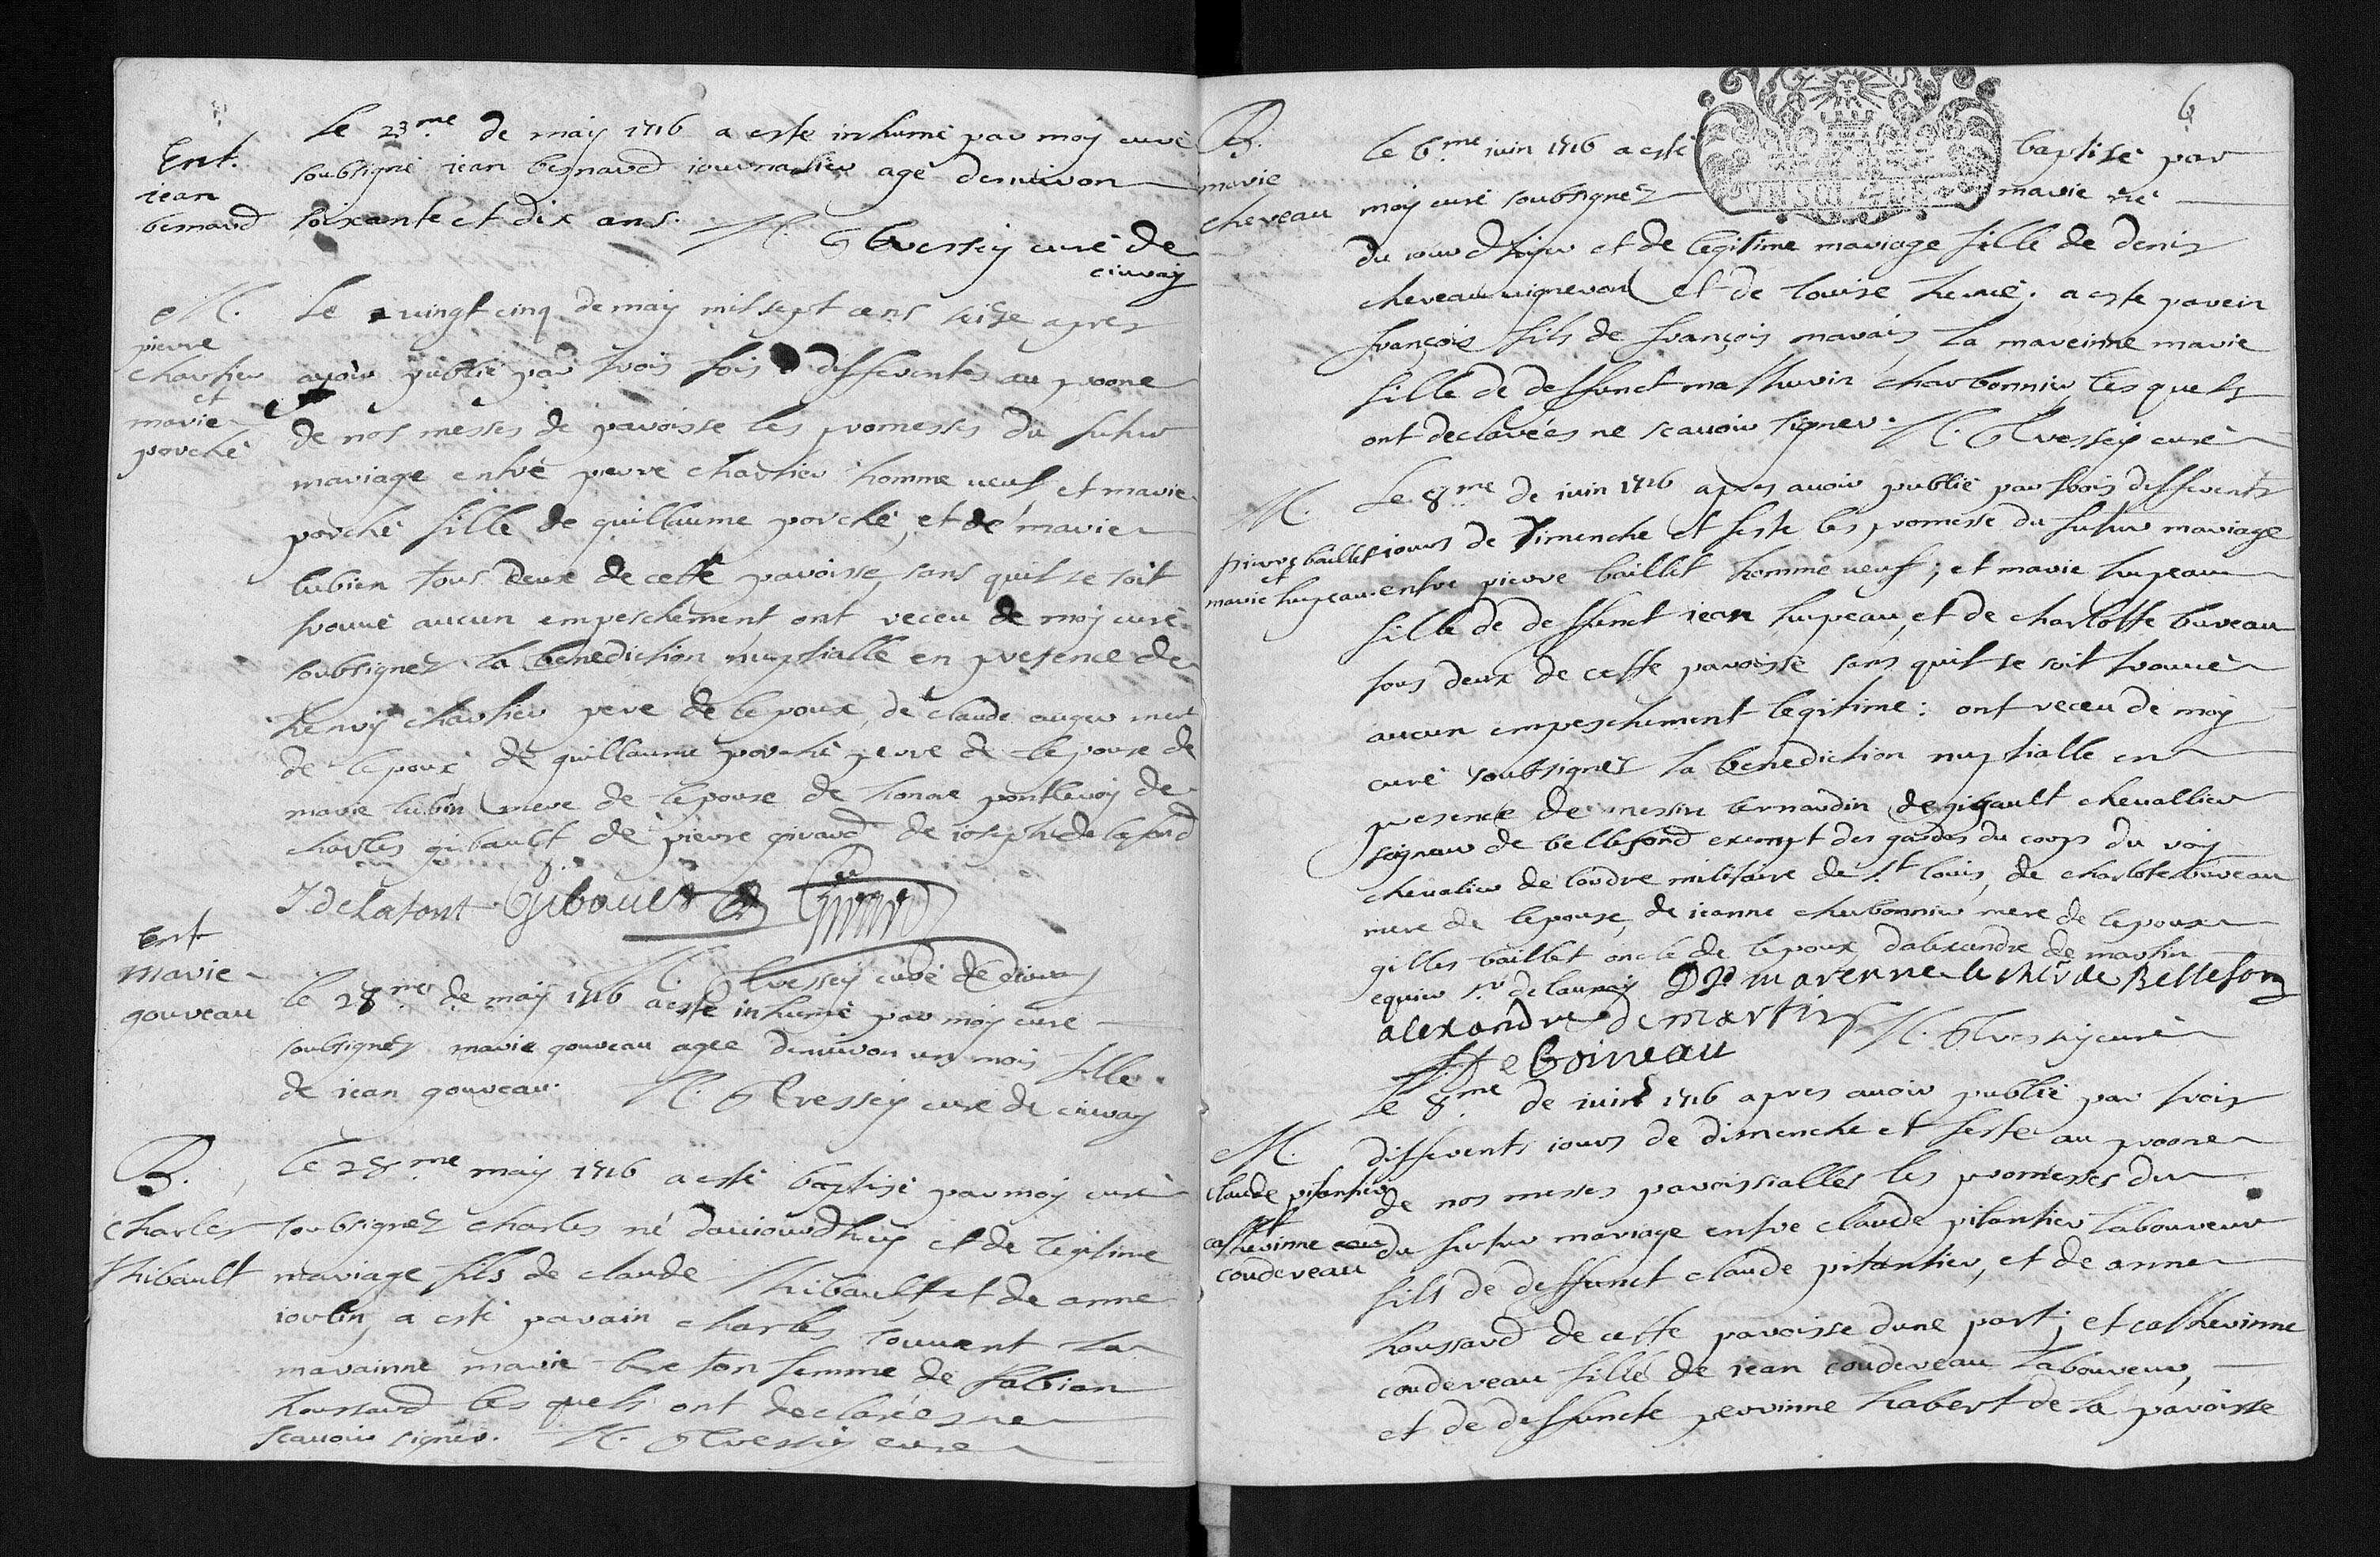 Ent.
jean
bernard
Le 23.me de may 1716 a este inhumé par moy curé
soubsigné jean bernard journalier agé denviron
soixante et dix ans. curé de
civray
M.
pierre
chartier
et
marie
porché
Le vingt cinq de may mil sept cens seize apres
avoir publié par trois fois differentes au proone
de nos messes de paroisse les promesses du futur
mariage entre pierre chartier homme veuf et marie
porché fille de guillaume porché, et de marie
lubien tous deux de cette paroisse, sans quil se soit
trouvé aucun empeschement ont receu de moy curé
soubsignez la benediction nuptialle en presence de
henry chartier pere de lepoux, de claude auger
de lepoux de guillaume porché perre de lepouse de
marie lubin mere de lepouse de pontlevoy de
charles gibault de pierre girard de joseph de lafond
J delafont Giboult Girard
curé de civray
Ent
marie
gouveau
le 28.me de may 1716 a este inhumé par moy curé
soubsignez marie gouveau agee denviron un mois fille
de jean gouveau. curé de civray
B.
Charles
thibault
le 28.me may 1716 a esté baptisé par moy curé
soubsignez charles né daujourdhuy et de legitime
mariage fils de claude thibault, et de anne
a esté parain charles la
marainne marie breton femme de fabian
houssard les quels ont declarées ne
scavoir signer. curé
6
B.
marie
cheveau
le 6.me juin 1716 a esté baptisé par
moy curé soubsignez marie né
du jour dhyer et de legitime mariage fille de denis
cheveau vigneron et de louise hervé. a este parein
françois fils de françois marais, la mareinne marie
fille de deffunct mathurin charbonnier, les quels
ont declarées ne scavoir signer. curé
M.
pierre baillet
et
marie hupeau
Le 8.me de juin 1716 apres avoir publié par trois differents
jours de Dimenche et feste les promesse du futur mariage
entre pierre baillet homme veuf; et marie hupeau
fille de deffunct jean hupeau, et de charlotte bureau
tous deux de cette paroisse sans quil se soit trouvé
aucun empeschement legitime: ont receu de moy
curé soubsignez la benediction nuptialle en
presence de messire bernardin de gigault chevallier
seigneur de bellefond exempt des gardes du corps du roy
chevalier de lordre militaire de St. louis, de charlote bureau
mere de lepouse, de jeanne charbonnier mere de lepoux
gilles baillet oncle de lepoux, dalexandre de martin
equier sr delaunay marenne le chr de Bellefon
alexandre de martin curé
Boineau
M.
claude pitantier
et
catherinne
coudereau
Le 8.me de juin 1716 apres avoir publié par trois
differents jours de dimenche et feste au proone
de nos messes paroissialles les promesses du
du futur mariage entre claude pitantier laboureur
fils de deffunct claude pitantier, et de anne
houssard de cette paroisse dune part; et catherinne
coudereau fille de jean coudereau laboureur,
et de deffuncte perrinne habert de la paroisse